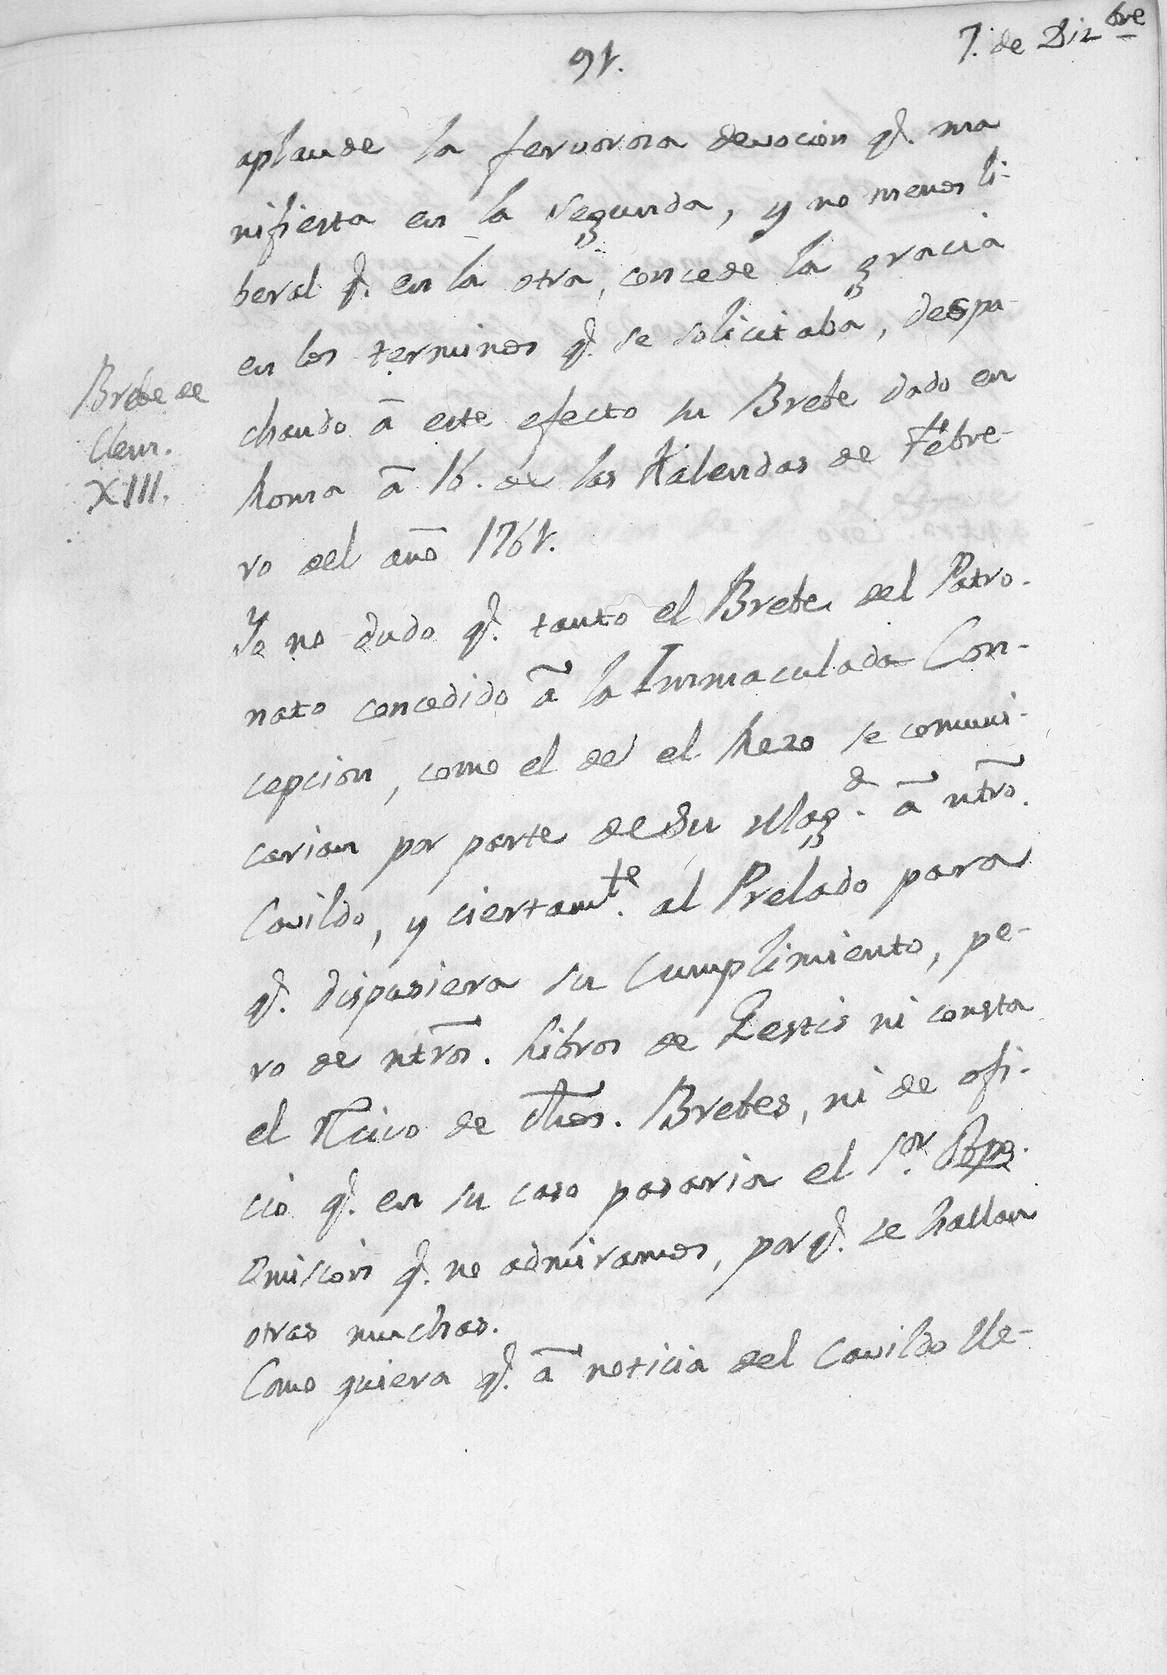 91.
7. de Diz.bre
aplaude la fervorosa devocion q.e ma
nifiesta en la segunda, y no menos li-
beral q.e en la otra, concede la gracia
en los terminos q.e se solicitaba, despa-
chando â este efecto su Brebe dado en
Roma â 16. de las Kalendas de Febre-
ro del año 1761.
Brebe de
Clem.
XIII.
Yo no dudo q.e tanto el Brebe del Patro-
nato concedido â la Inmaculada Con-
cepcion, como el de el Rezo se comuni-
carian por parte de Su Mag.d â ntro.
Cavildo, y ciertam.te al Prelado para
q.e dispusiera su cumplimiento, pe-
ro de ntros. Libros de Gestis ni consta
el rcivo de dhos. Brebes, ni de ofi-
cio q.e en su caso pasaria el S.or Obpo.
Omision q.e no admiramos, porq.e se hallan
otras muchas.
Como quiera q.e â noticia del Cavildo lle-